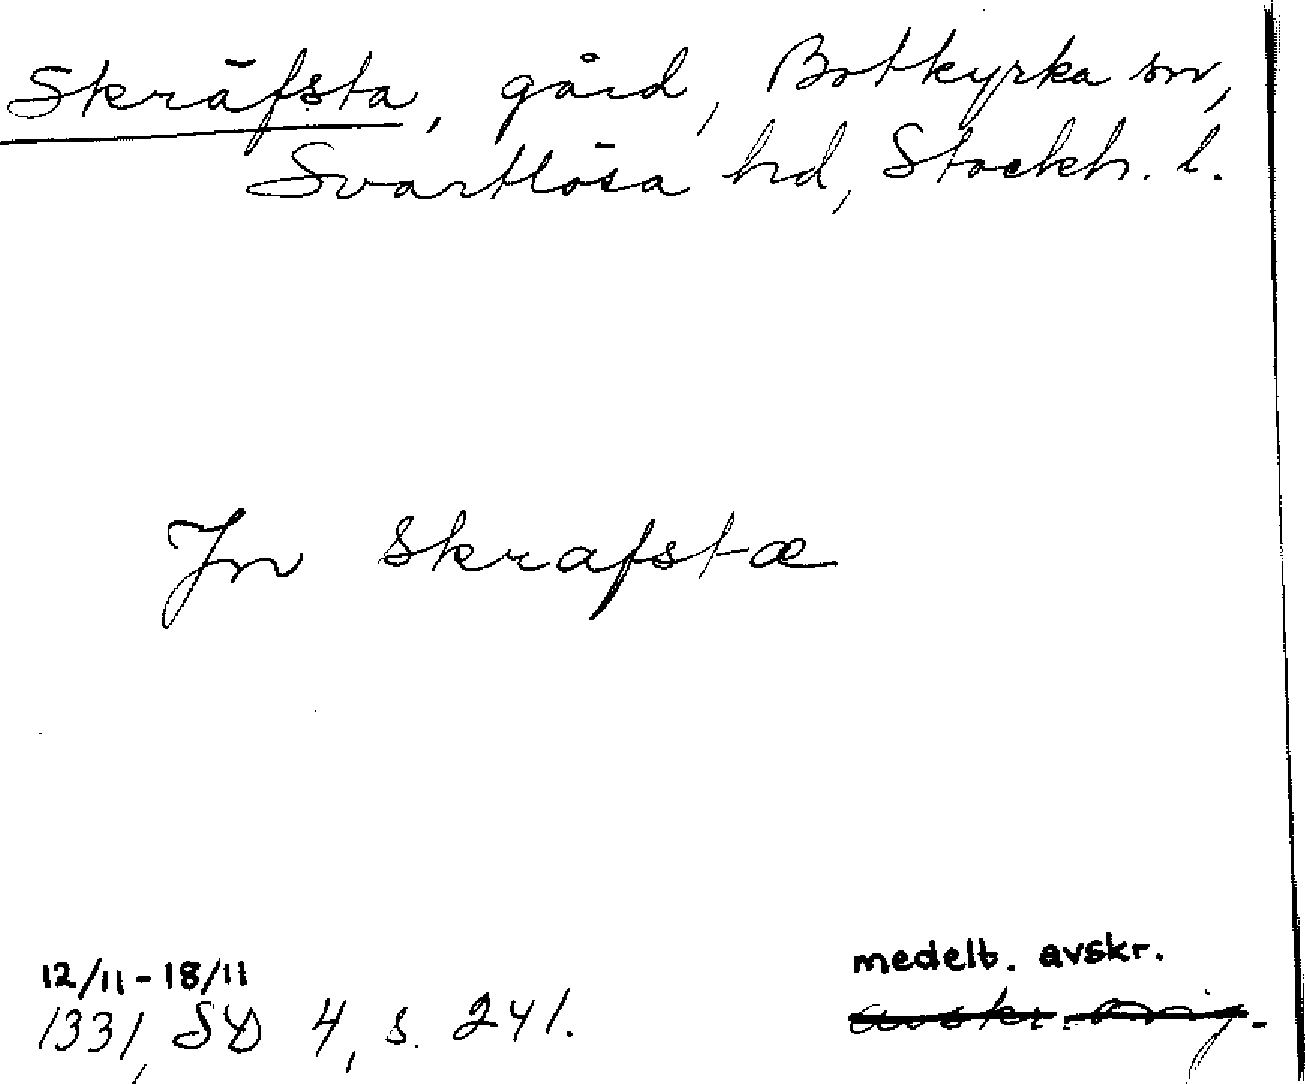 Skräfsta, gård, Botkyrka sn,
Svartlösa hd, Stockh. l.
Jn skrafstæ
12/11-18/11
1331, SD 4, s. 241.
medelt. avskr.
avskr. Orig.